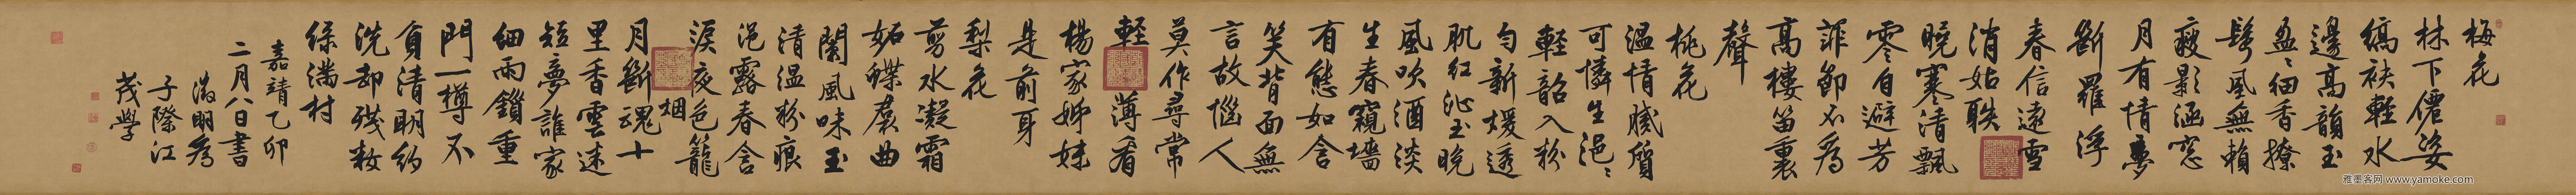 梅花
林下僊姿
縞袂輕水
邊高韻玉
盈〻細香撩
鬢風無賴
瘦影涵窓
月有情夢
斷羅浮
春信遠雪
消姑射
曉寒清飄
零自避芳
菲節不為
高樓笛裏
聲
桃花
溫情膩質
可憐生浥〻
輕韶入粉
勻新煖透
肌紅沁玉晚
風吹酒淡
生春窺墻
有態如含
笑背面無
言故惱人
莫作尋常
輕薄看
楊家姊妹
是前身
梨花
剪水凝霜
妬蝶裙曲
闌風味玉
清溫粉痕
浥露春含
淚夜色籠
烟
月斷魂十
里香雲迷
短夢誰家
細雨鎖重
門一樽不
負清明約
洗却殘
綠滿村
嘉靖乙卯
二月八日書
徵明為
子隆江
茂學
雅墨客网 www.yamoke.com